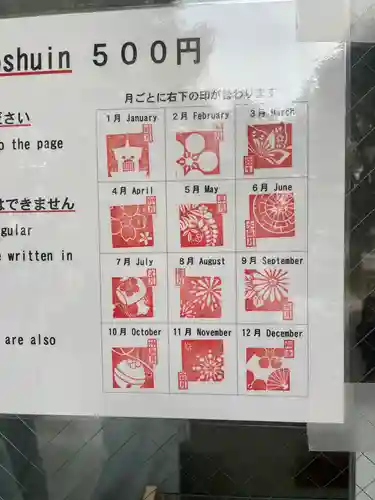 oshuin 500円
月ごとに右下の印が替わります
ださい
o the page
はできません
gular
e written in
are also
1月 January
2月 February
3月 March
4月 April
5月 May
6月 June
7月 July
8月 August
9月 September
10月 October
11月 November
12月 December